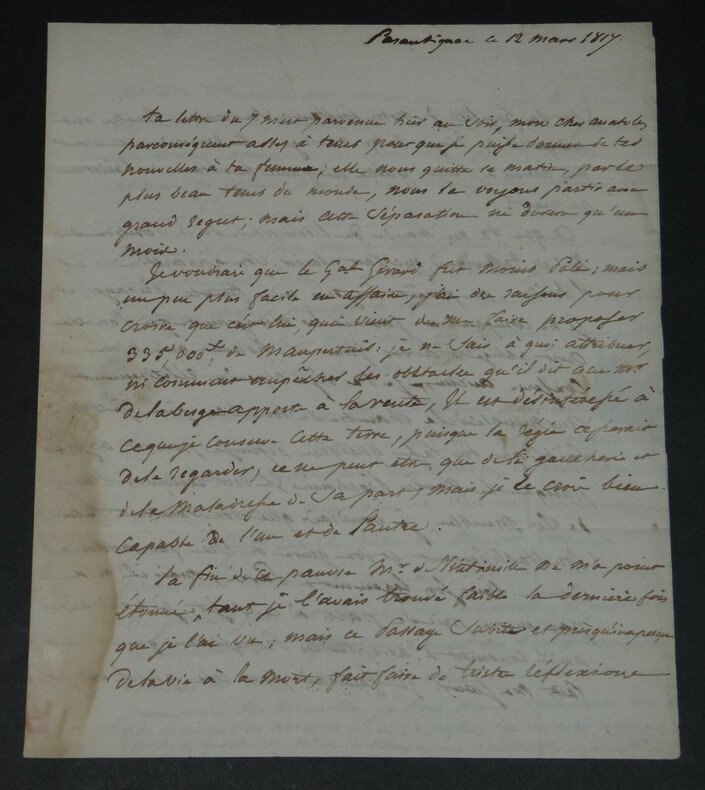 ce 12 mars 1817.
ta lettre du 7 m'est parvenue hier au soir, mon cher anatole,
par conséquent assés à tems pour que je puisse donner de tes
nouvelles à ta femme; elle nous quitte ce matin, par le
plus beau tems du monde, nous la voyons partir avec
grand regret; mais cette séparation ne durera qu'un
mois.
Je voudrais que le Gal Gérard fut moins poli; mais
un peu plus facile en affaire, j'ai des raisons pour
croire que c'est lui, qui vient de me faire proposer
335,000 de Maupertuis: je ne sais à quoi attribuer,
ni comment empêcher les obstacles qu'il dit que mr
de la berge apporte a la vente, Il est désintéressé à
ce que je conserve cette terre, puisque la régie cesserait
de le regarder, ce ne peut être que de la gaucherie et
de la maladresse de sa part, mais je le crois bien
capable de l'une et de l'autre.
la fin de ce pauvre Mr. de ne m'a point
étonné, tant je l'avais trouvé faible la dernière fois
que je l'ai vu; mais ce passage subit et presqu'inaperçu
de la vie à la mort, fait faire de triste réflexions